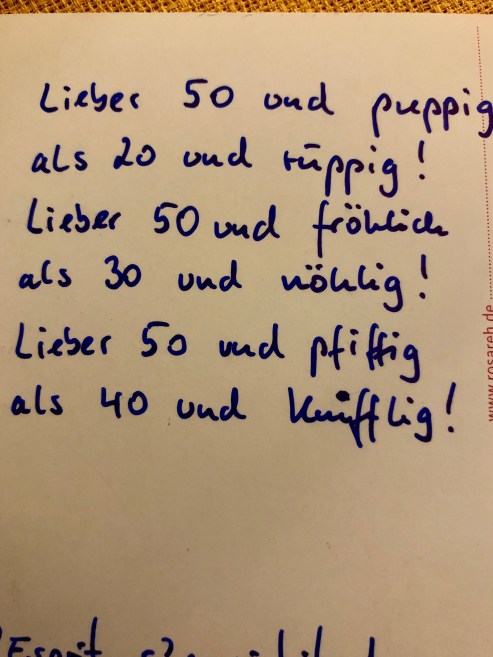 Lieber 50 und peppig
als 20 und rüppig!
Lieber 50 und fröhlich
als 30 und nöhlig!
Lieber 50 und pfiffig
als 40 und knifflig!
www.rosareh.de